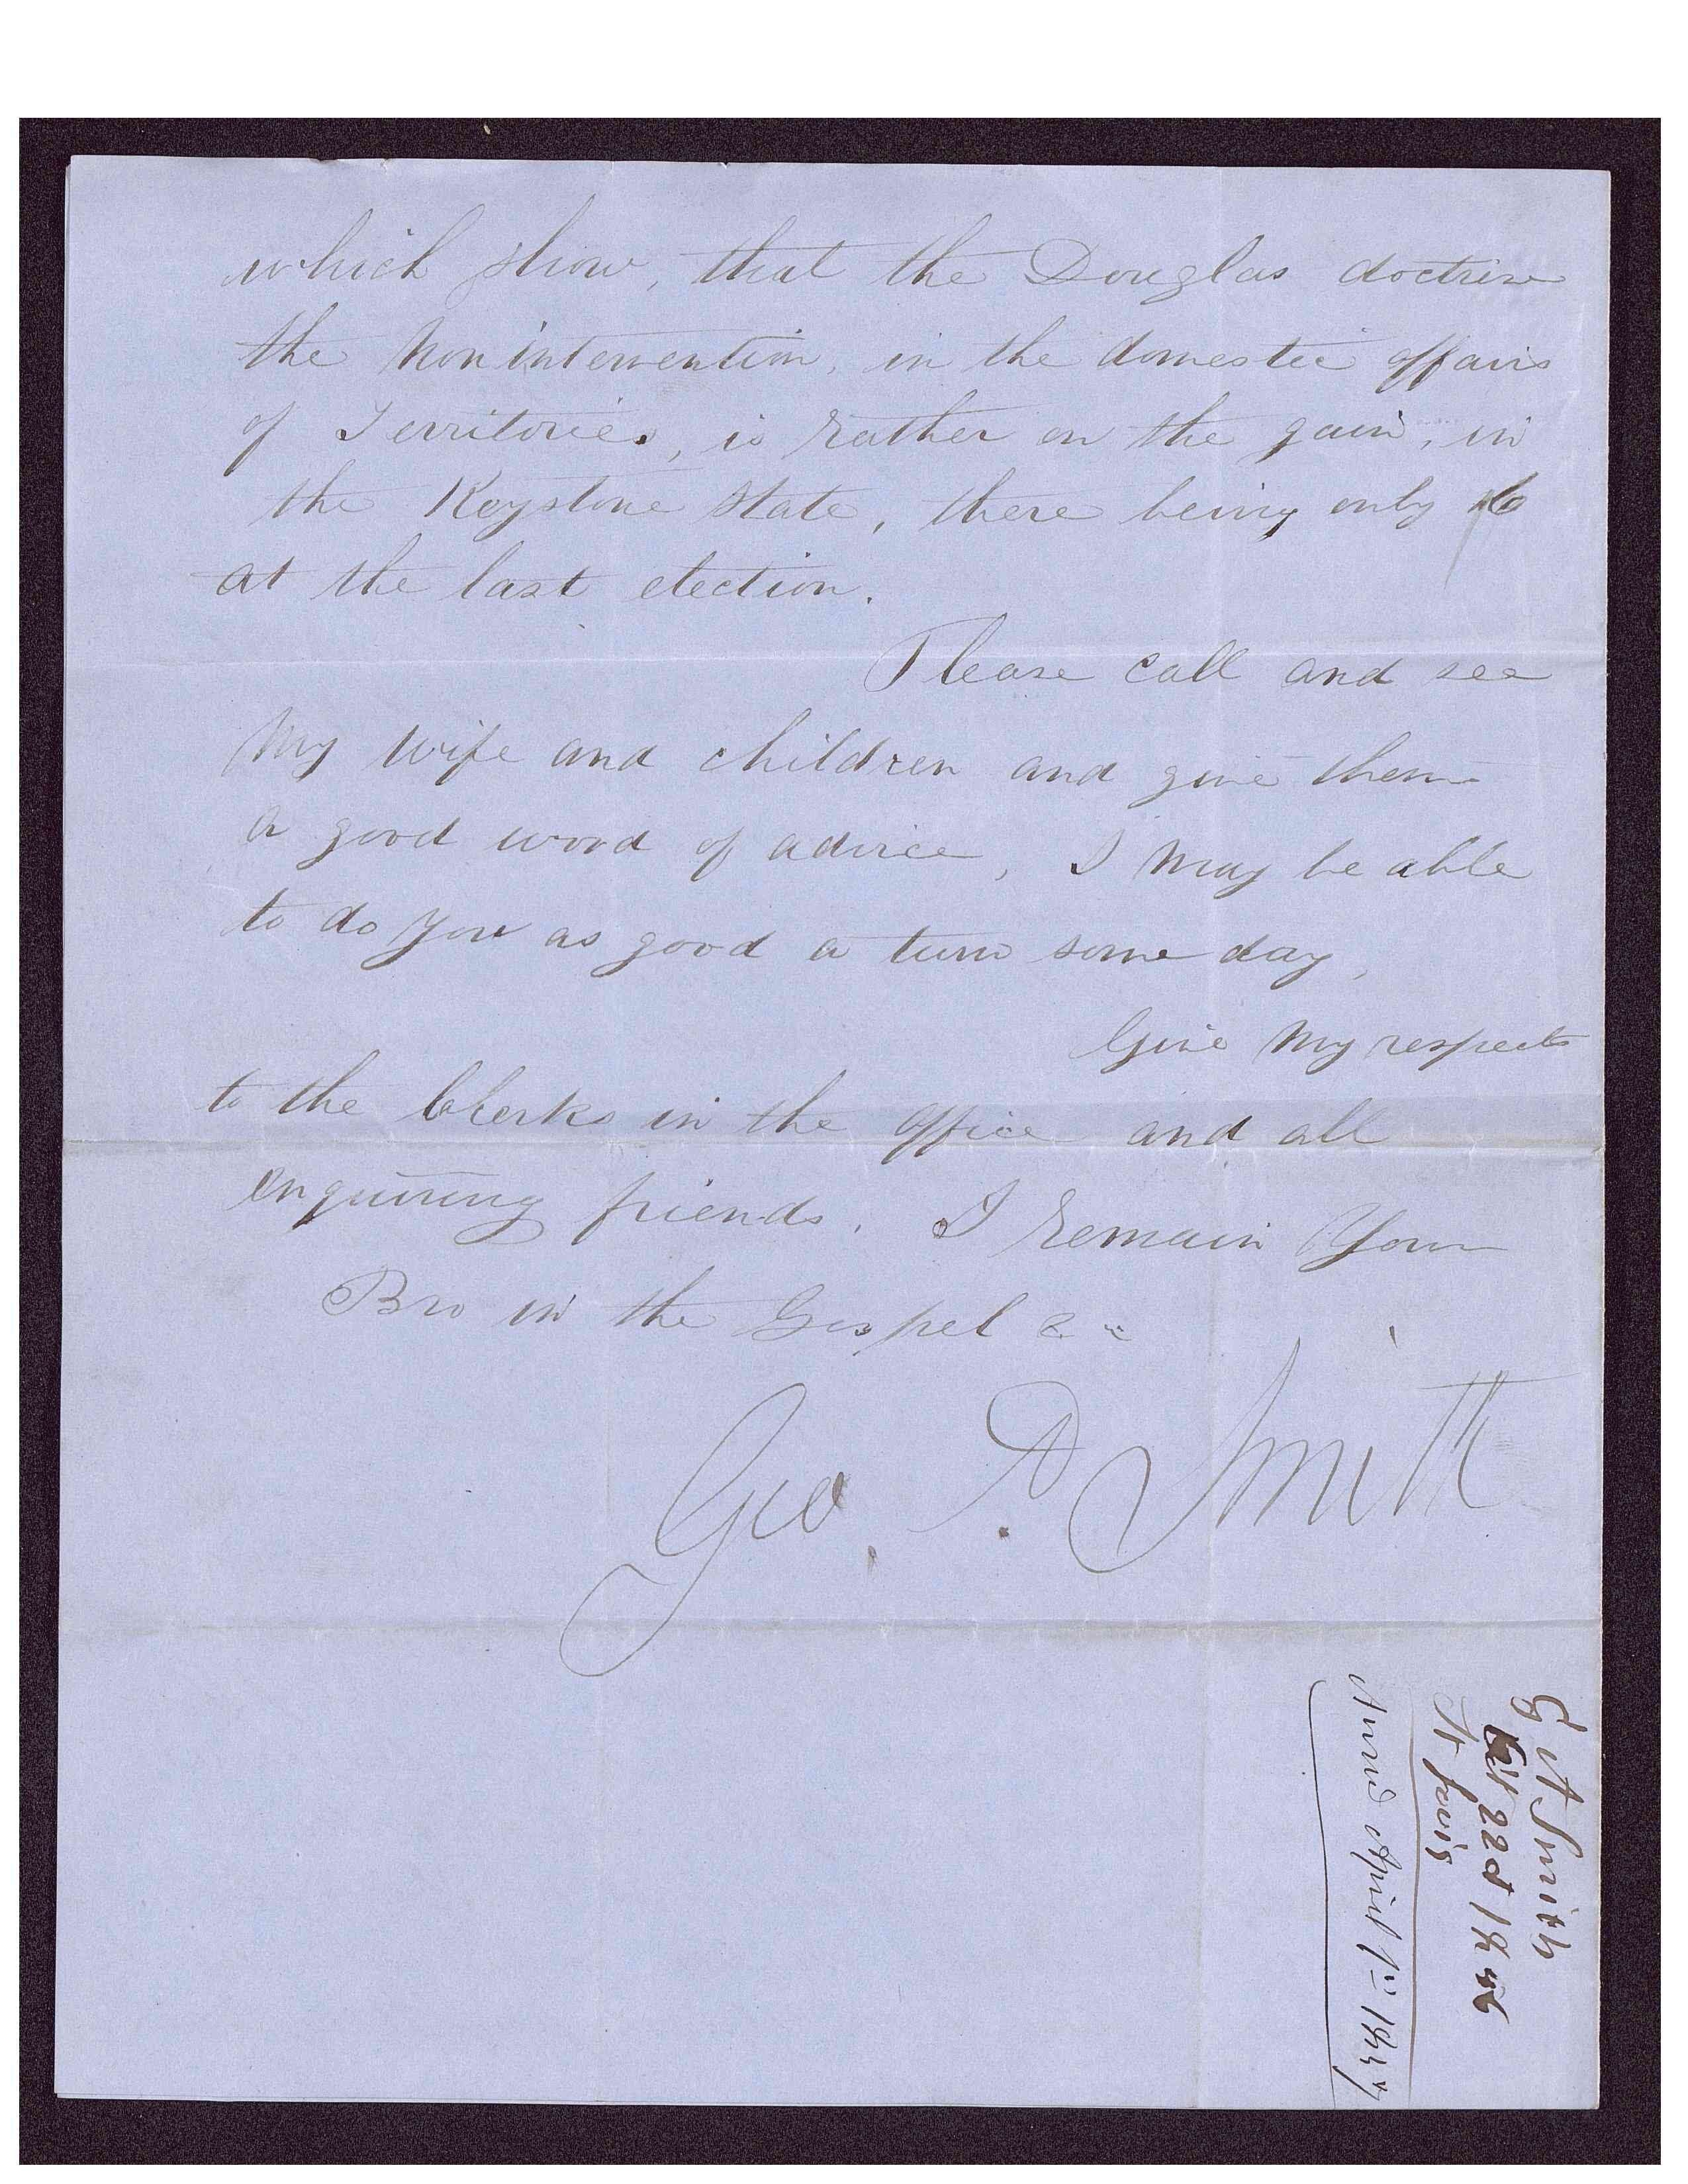 which show, that the Douglas doctrine
the Nonintervention, in the domestic affairs
of Territories, is rather on the gain, in
the Keystone State, there being only
at the last election.
Please call and see
My wife and children and give them
a good word of advice, I may be able
to do you as good a turn some day,
Give My respects
to the Clerks in the office and all
enquiring friends. I remain Your
Bro in the Gospel &c
Geo. A Smith
G A Smith
22d 1856
St Louis
April 1st 1857